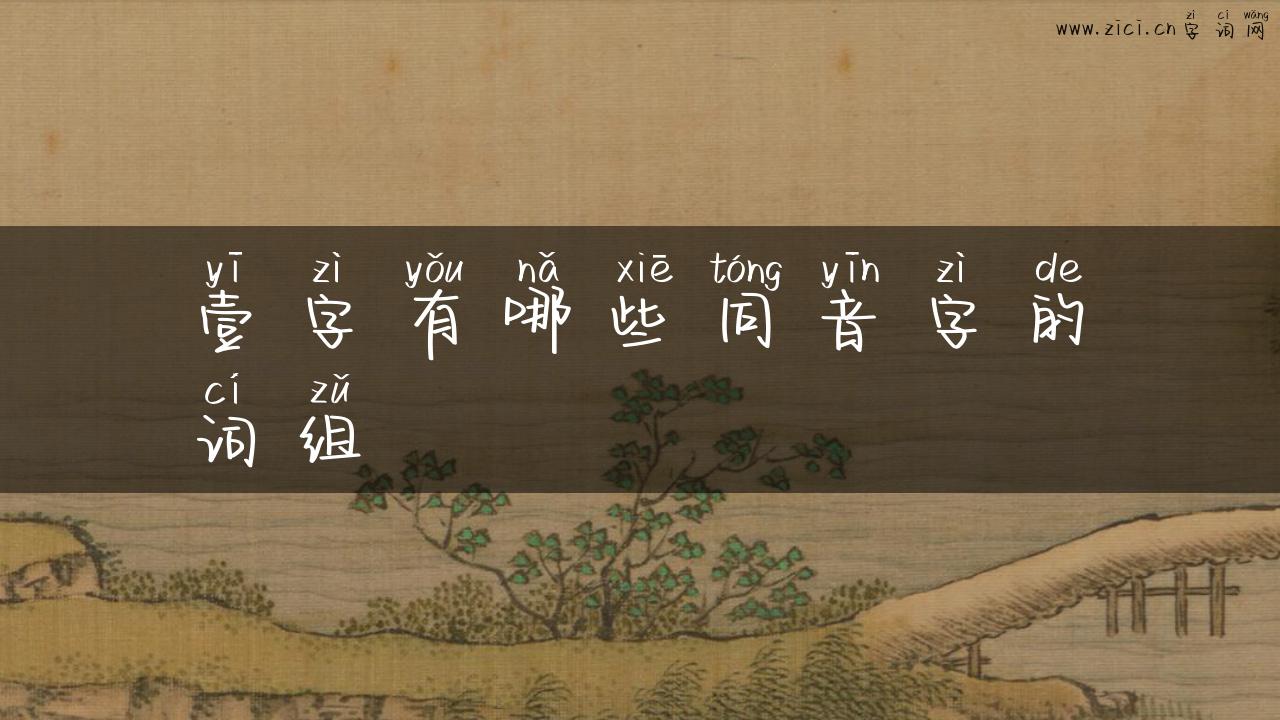 zì cí wǎng
www.zici.cn 字词网
yī zì yǒu nǎ xiē tóng yīn zì de
壹字有哪些同音字的
cí zǔ
词组